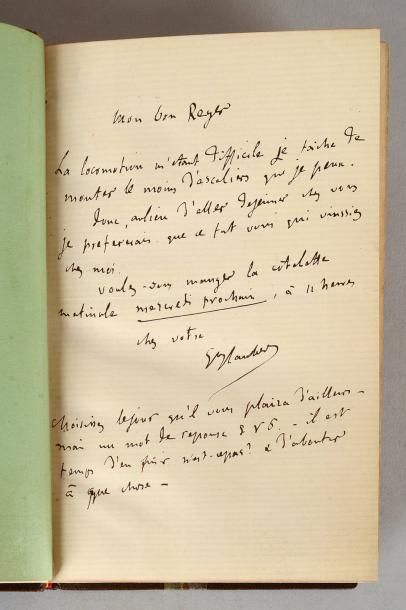 Mon bon Reyer
La locomotion m'étant difficile je tâche de
monter le moins d'escaliers que je peux.
Donc, au lieu d'aller déjeuner chez vous
je préférerais que ce fut vous qui vinssiez
chez moi.
voulez-vous manger la côtelette
matinale mercredi prochain, à 11 heures
chez votre
GFlaubert
choisissez le jour qu'il vous plaira d'ailleurs –
mais un mot de réponse S V S. – il est
temps d'en finir n'est-ce pas? & d'aboutir
à qque chose –